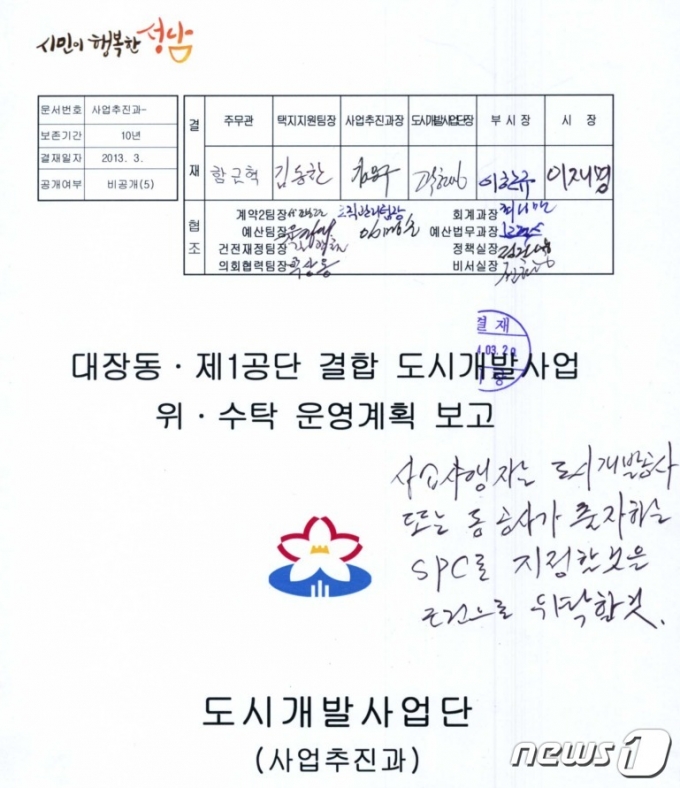 시민이 행복한 성남
문서번호 사업추진과-
보존기간 10년
결재일자 2013. 3.
공개여부 비공개(5)
결재
주무관 택지지원팀장 사업추진과장 도시개발사업단장 부시장 시장
함근혁 김동한 이재명
협조
계약2팀장 조직관리팀장 회계과장
예산팀장 예산법무과장
건전재정팀장 정책실장
의회협력팀장 비서실장
결재
.03.2
대장동·제1공단 결합 도시개발사업
위·수탁 운영계획 보고
사업시행자는 도시개발공사
또는 동 공사가 출자하는
SPC로 지정한것을
조건으로 위탁할것.
도시개발사업단
(사업추진과)
news1